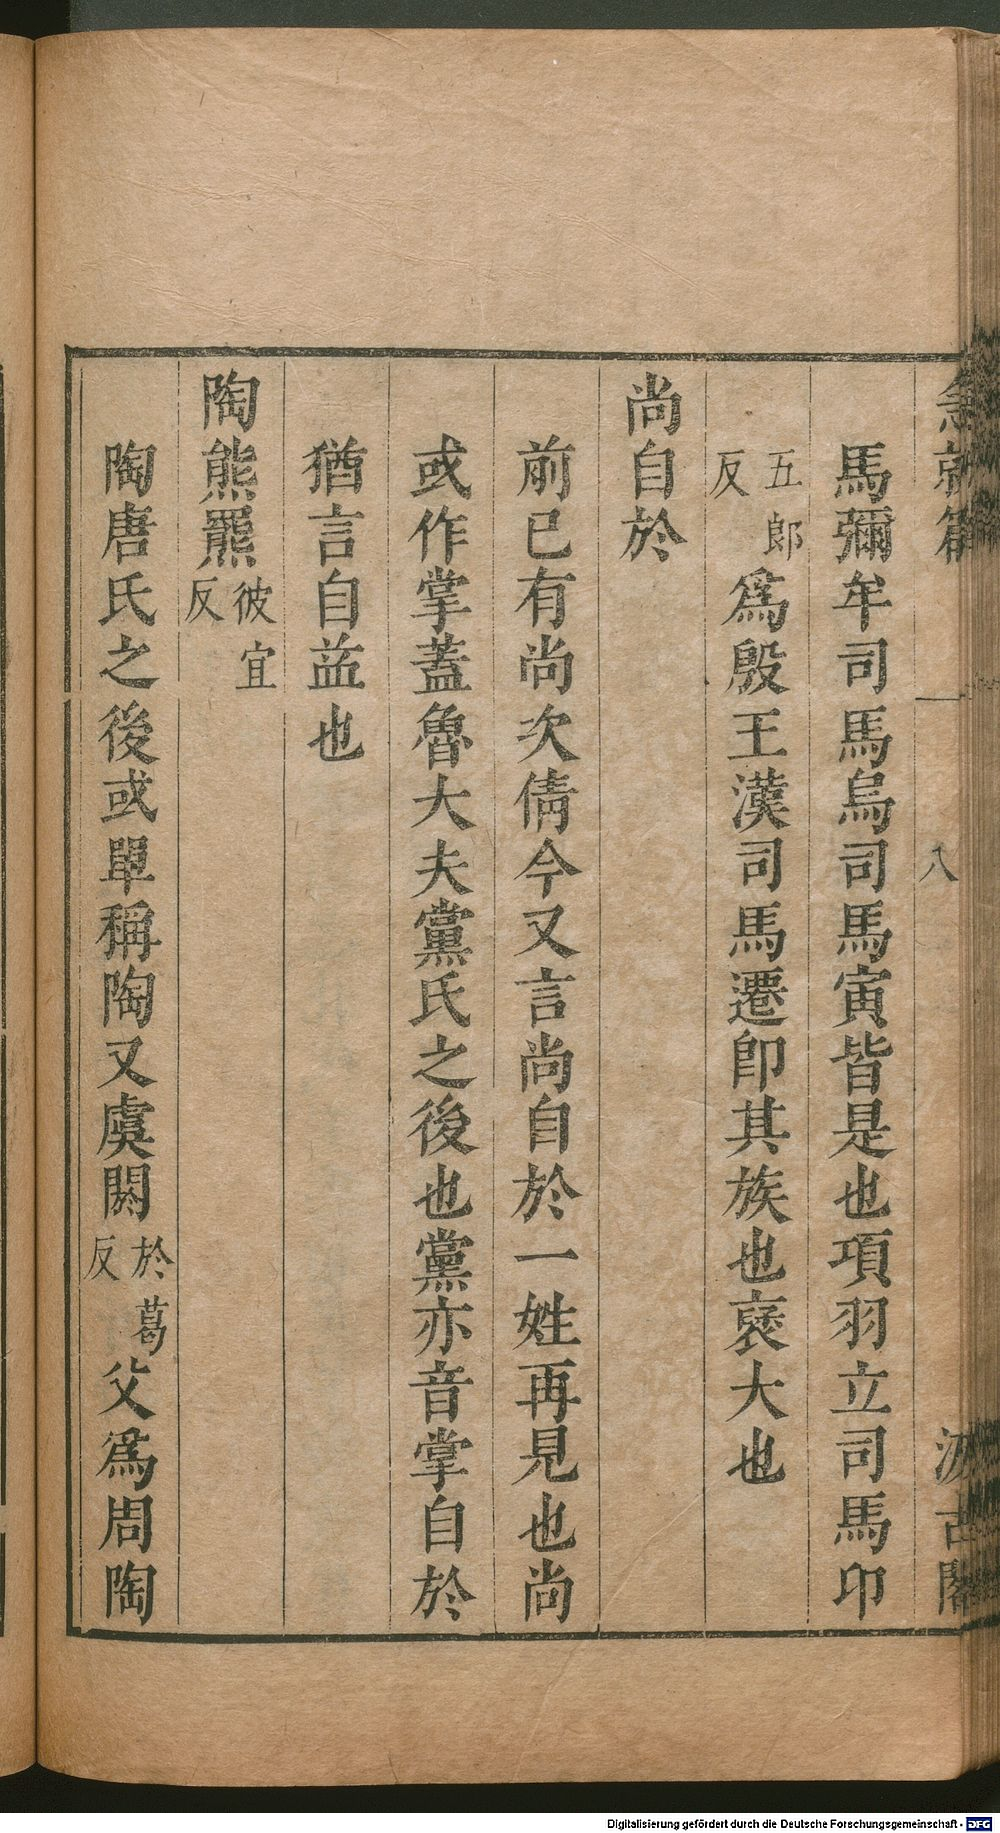 急就篇 八 汲古閣
馬彌牟司馬烏司馬寅皆是也項羽立司馬卬
五郎反爲殷王漢司馬遷卽其族也襃大也
尚自於
前已有尚次倩今又言尚自於一姓再見也尚
或作掌蓋魯大夫黨氏之後也黨亦音掌自於
猶言自益也
陶熊羆彼宜反
陶唐氏之後或單稱陶又虞閼於葛反父爲周陶
Digitalisierung gefördert durch die Deutsche Forschungsgemeinschaft - DFG